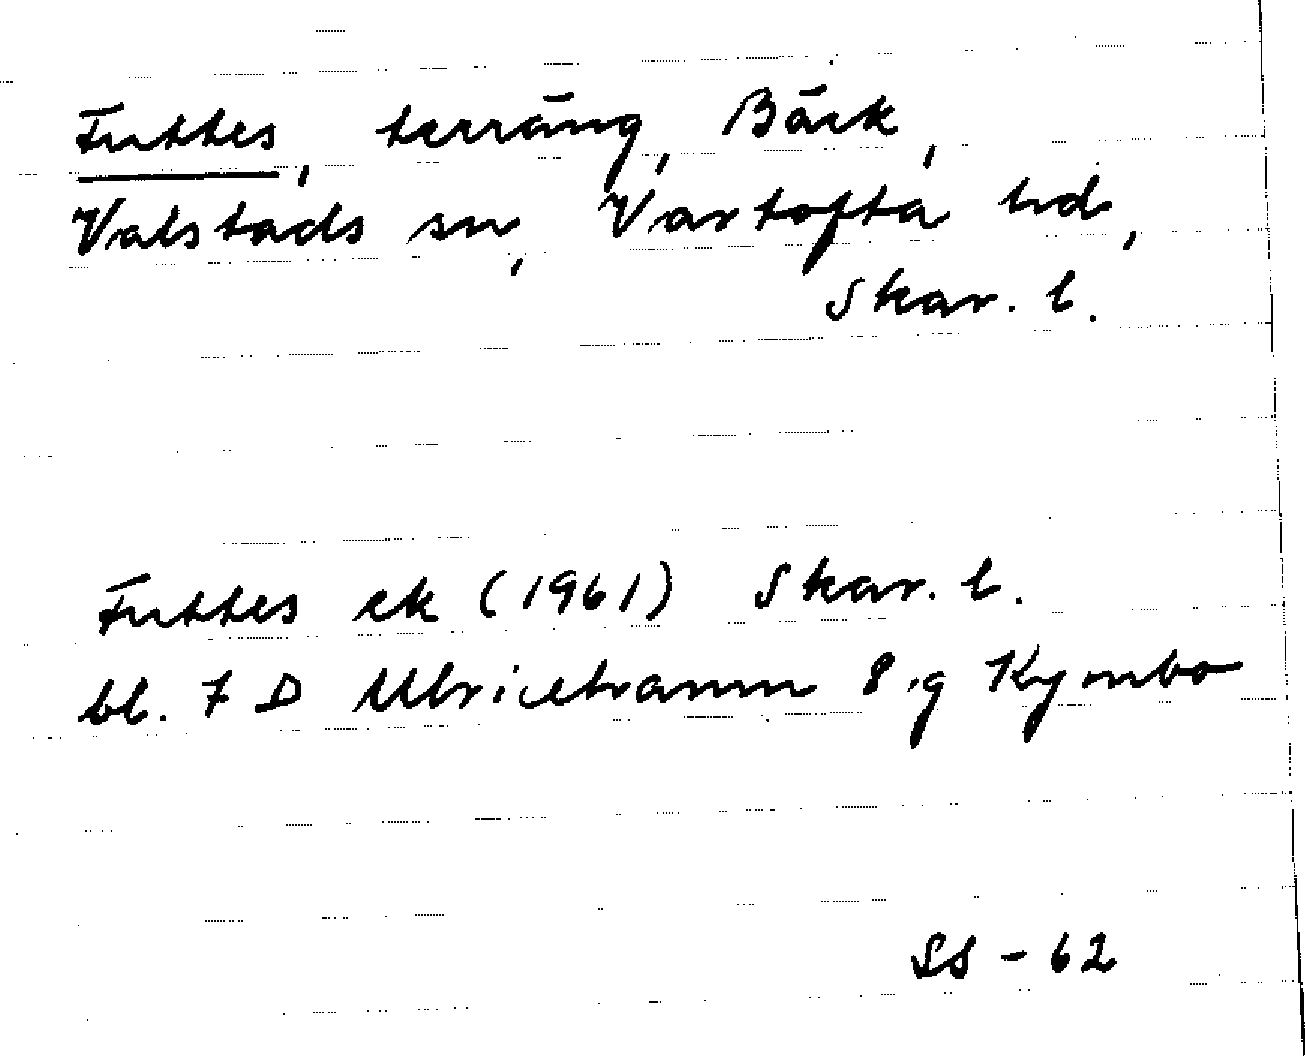 Futtes, terräng, Bäck,
Valstads sn, Vartofta hd,
Skar. l.
Futtes ek (1961) Skar. l.
bl. 7 D Ulricehamn 8 g Kymbo
SS - 62